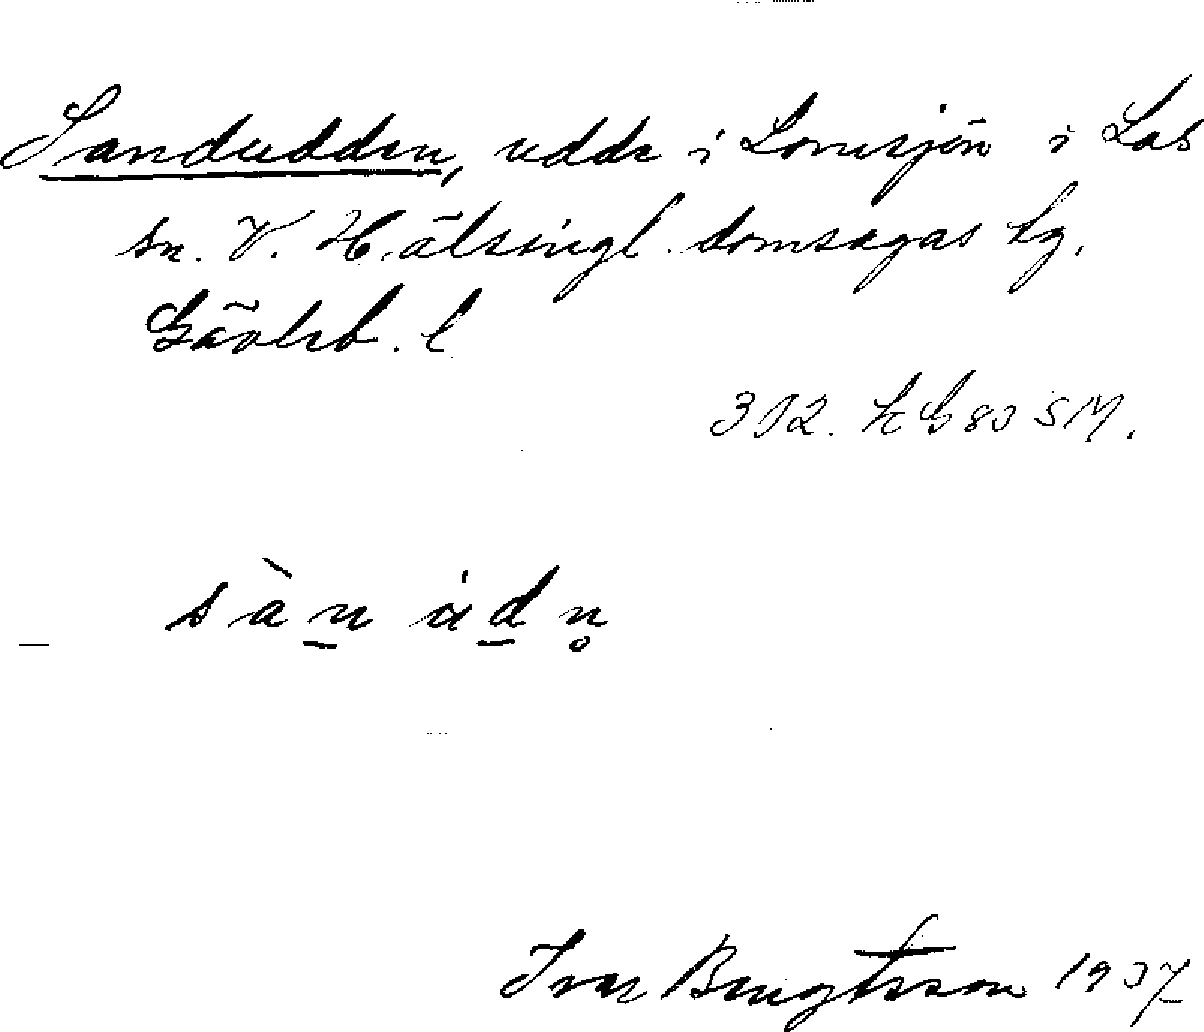 Sandudden, udde i Lomsjön i Los
sn. V. Hälsingl. domsagas tg.
Gävleb. l
302. hG80 SM.
sàn ùdn̥
Ivar Bengtsson 1937